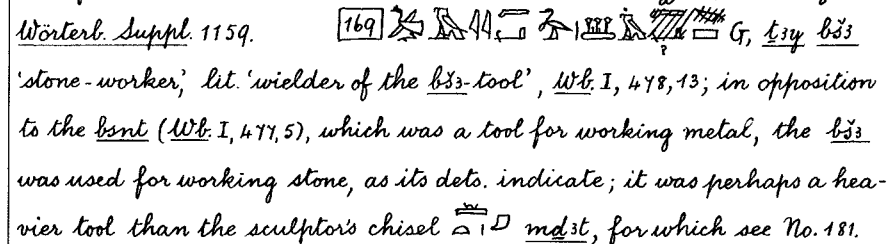 Wörterb. Suppl. 1159. 169 G, ṯ3y bš3
'stone-worker,' lit. 'wielder of the bš3-tool', Wb. I, 478, 13; in opposition
to the bsnt (Wb. I, 477, 5), which was a tool for working metal, the bš3
was used for working stone, as its dets. indicate; it was perhaps a hea-
vier tool than the sculptor's chisel mḏ3t, for which see No. 181.